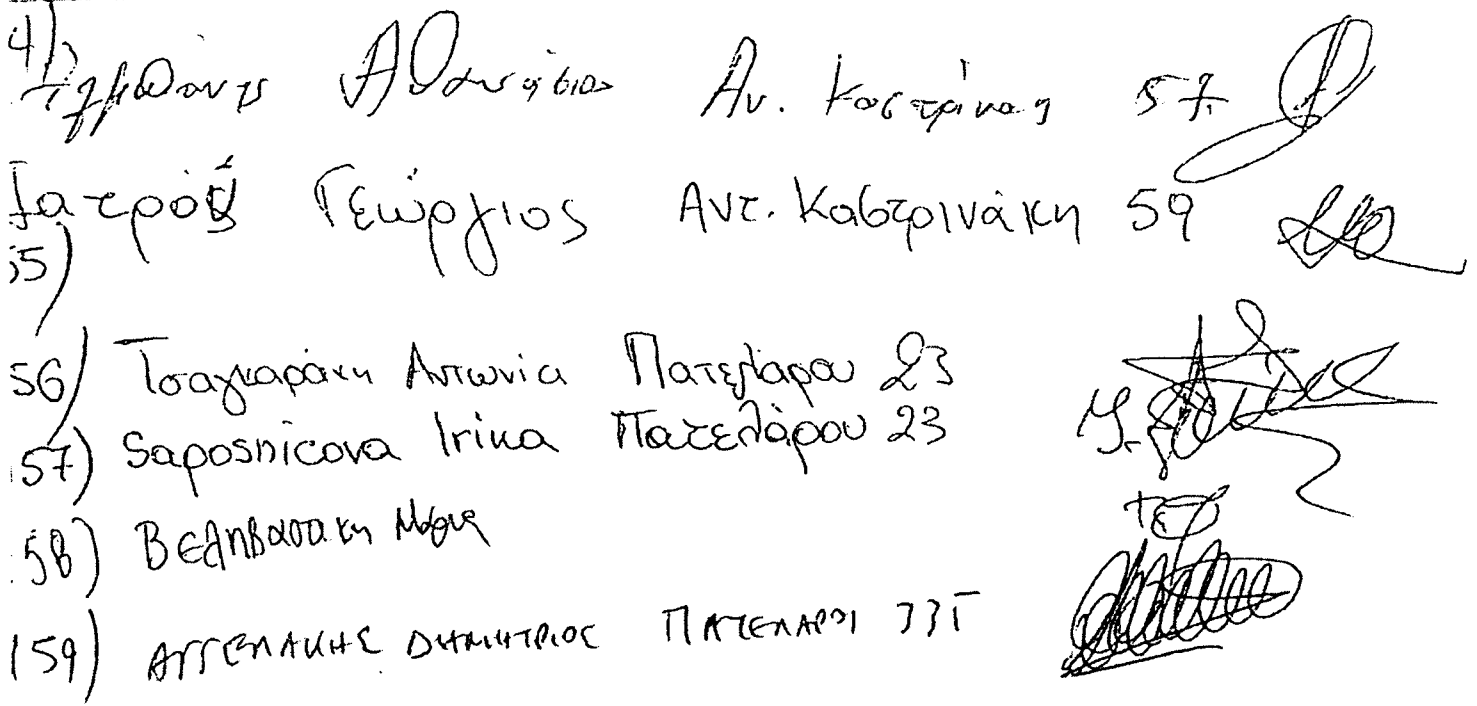 4) Αθανάσιος Αν. Καστρινάκη 57
Ιατρού Γεώργιος Αντ. Καστρινάκη 59
55)
56) Τσαγκαράκη Αντωνία Πατελάρου 23
157) Saposnicova Irina Πατελάρου 23
158) Βεληβασάκη
159) ΑΓΓΕΛΑΚΗΣ ΔΗΜΗΤΡΙΟΣ ΠΑΤΕΛΑΡΟΥ 33Γ